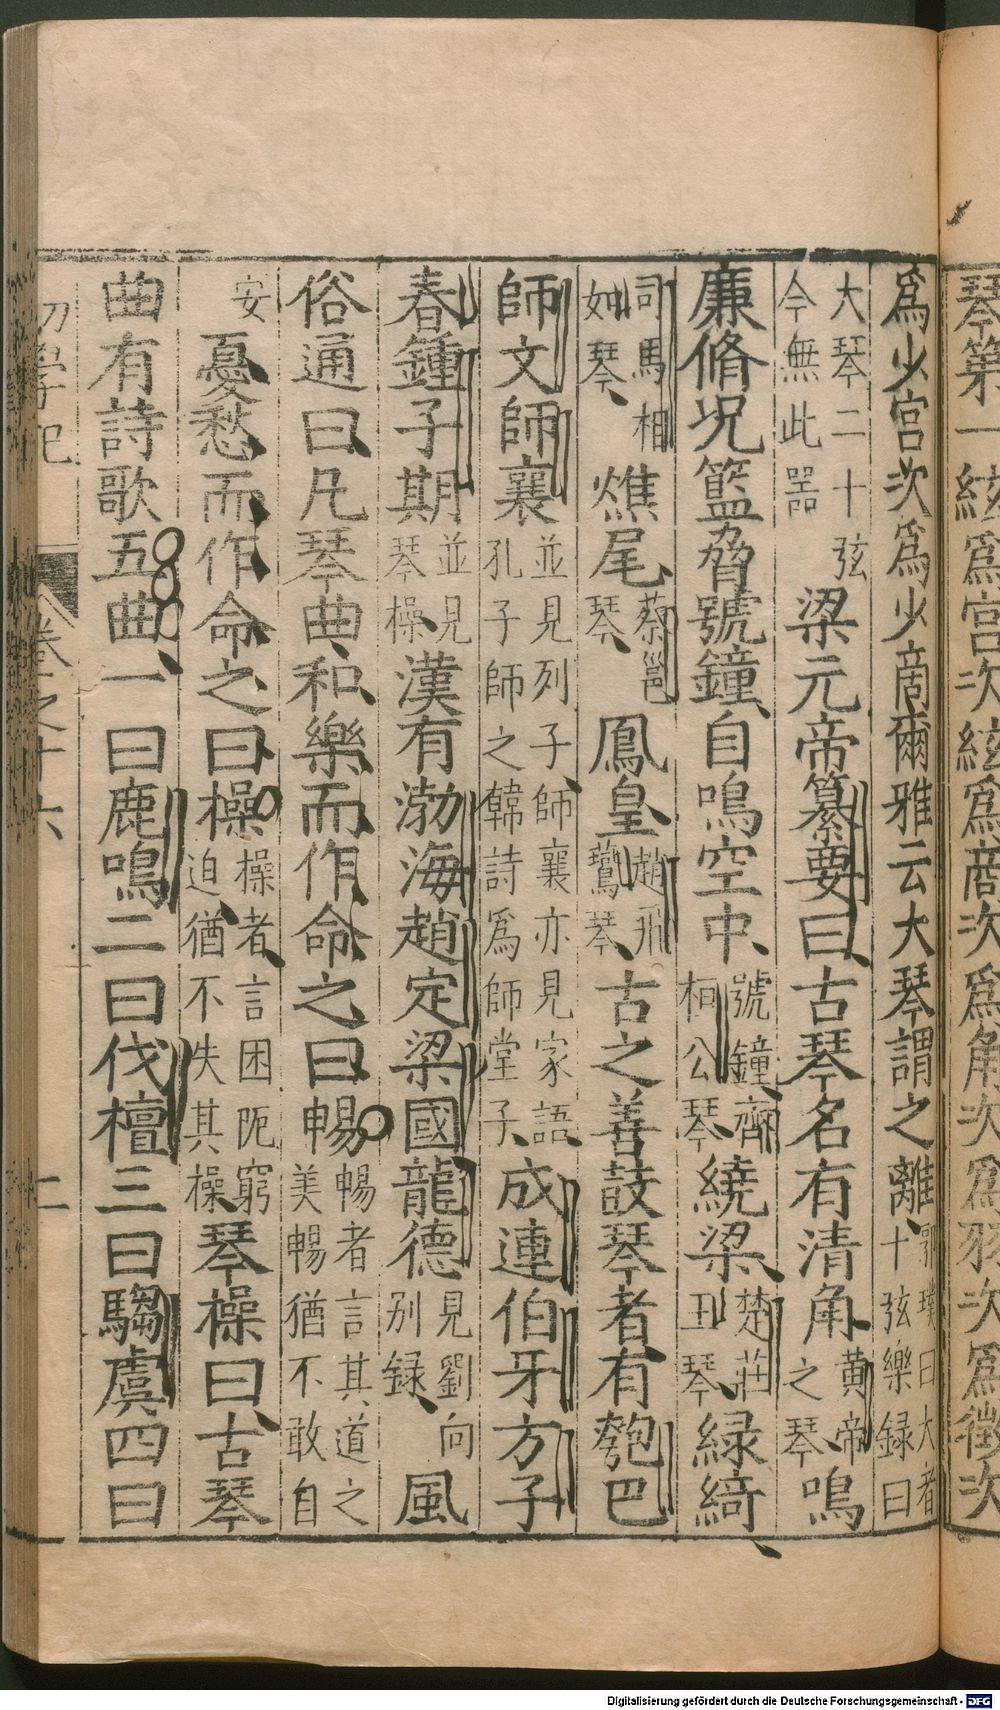 琴第一絃爲宮次絃爲商次爲角次爲羽次爲徵次
爲少宮次爲少商爾雅云大琴謂之離郭璞曰大者十弦樂録曰
大琴二十弦今無此器梁元帝纂要曰古琴名有清角黄帝之琴鳴
廉脩况籃脅號鐘自鳴空中號鐘齊桓公琴繞梁楚莊王琴緑綺
司馬相如琴燋尾蔡邕琴鳳皇趙飛鷰琴古之善鼓琴者有匏巴
師文師襄並見列子師襄亦見家語孔子師之韓詩爲師堂子成連伯牙方子
春鍾子期並見琴操漢有渤海趙定梁國龍德見劉向别録風
俗通曰凡琴曲和樂而作命之曰暢暢者言其道之美暢猶不敢自
安憂愁而作命之曰操操者言困阨窮迫猶不失其操琴操曰古琴
曲有詩歌五曲一曰鹿鳴二曰伐檀三曰騶虞四曰
初學記 卷之十六 二
Digitalisierung gefördert durch die Deutsche Forschungsgemeinschaft - DFG